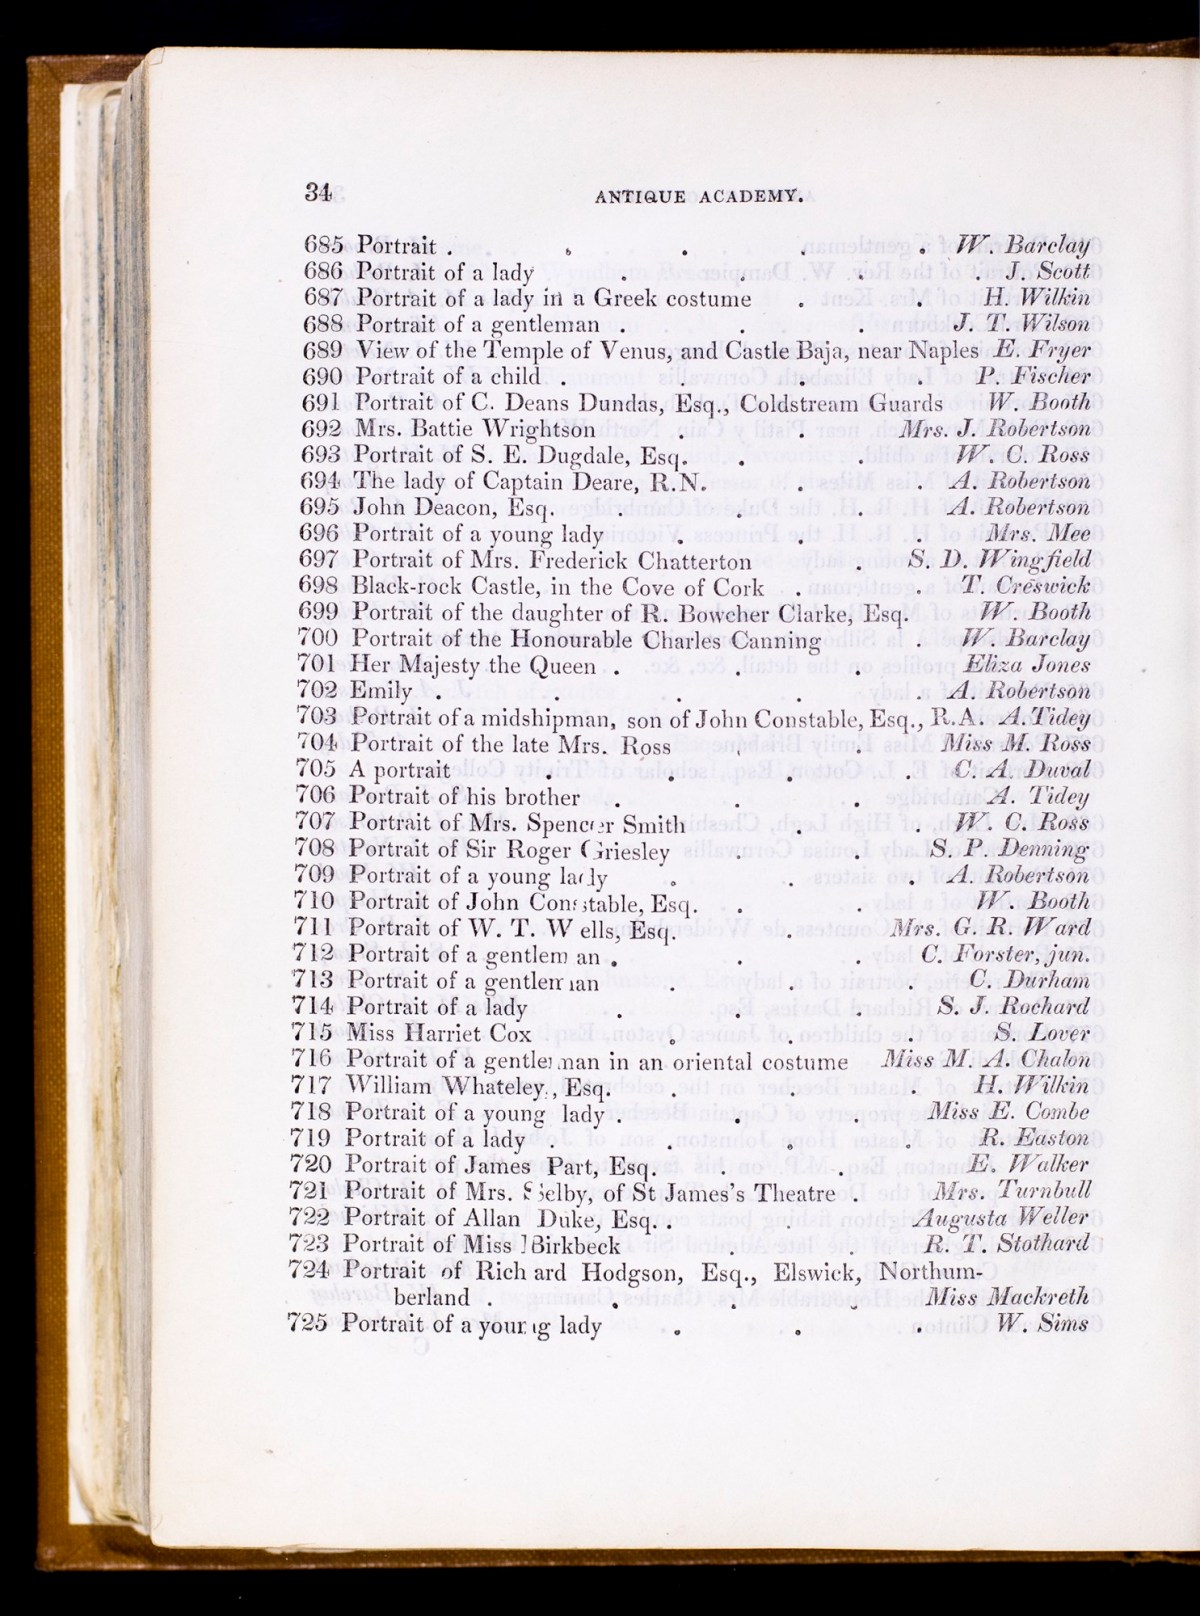 34 ANTIQUE ACADEMY.
685 Portrait . . . . . W. Barclay
686 Portrait of a lady . . . . J. Scott
687 Portrait of a lady in a Greek costume . . H. Wilkin
688 Portrait of a gentleman . . . J. T. Wilson
689 View of the Temple of Venus, and Castle Baja, near Naples E. Fryer
690 Portrait of a child . . . . . P. Fischer
691 Portrait of C. Deans Dundas, Esq., Coldstream Guards W. Booth
692 Mrs. Battie Wrightson . . Mrs. J. Robertson
693 Portrait of S. E. Dugdale, Esq. . . W. C. Ross
694 The lady of Captain Deare, R.N. . . A. Robertson
695 John Deacon, Esq. . . . . A. Robertson
696 Portrait of a young lady . . . Mrs. Mee
697 Portrait of Mrs. Frederick Chatterton . S. D. Wingfield
698 Black-rock Castle, in the Cove of Cork . . T. Creswick
699 Portrait of the daughter of R. Bowcher Clarke, Esq. W. Booth
700 Portrait of the Honourable Charles Canning . W. Barclay
701 Her Majesty the Queen . . . Eliza Jones
702 Emily . . . . . A. Robertson
703 Portrait of a midshipman, son of John Constable, Esq., R.A. A. Tidey
704 Portrait of the late Mrs. Ross . . Miss M. Ross
705 A portrait . . . . C. A. Duval
706 Portrait of his brother . . . A. Tidey
707 Portrait of Mrs. Spencer Smith . . W. C. Ross
708 Portrait of Sir Roger Griesley . . S. P. Denning
709 Portrait of a young lady . . . A. Robertson
710 Portrait of John Constable, Esq. . . W. Booth
711 Portrait of W. T. Wells, Esq. . Mrs. G. R. Ward
712 Portrait of a gentleman . . . C. Forster, jun.
713 Portrait of a gentleman . . . C. Durham
714 Portrait of a lady . . . S. J. Rochard
715 Miss Harriet Cox . . . S. Lover
716 Portrait of a gentleman in an oriental costume Miss M. A. Chalon
717 William Whateley, Esq. . . . H. Wilkin
718 Portrait of a young lady . . . Miss E. Combe
719 Portrait of a lady . . . . R. Easton
720 Portrait of James Part, Esq. . . E. Walker
721 Portrait of Mrs. Selby, of St James's Theatre Mrs. Turnbull
722 Portrait of Allan Duke, Esq. . . Augusta Weller
723 Portrait of Miss Birkbeck . . R. T. Stothard
724 Portrait of Richard Hodgson, Esq., Elswick, Northum-
berland . . . . Miss Mackreth
725 Portrait of a young lady . . . W. Sims